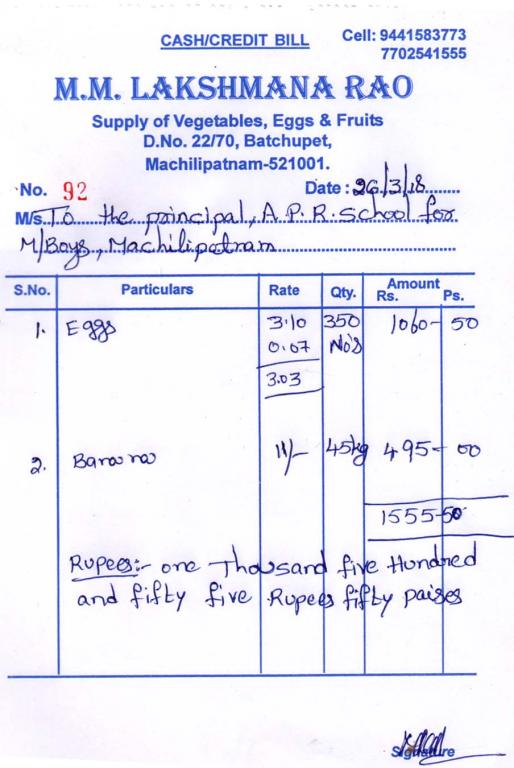 CASH/CREDIT BILL Cell: 9441583773
7702541555
M.M. LAKSHMANA RAO
Supply of Vegetables, Eggs & Fruits
D.No. 22/70, Batchupet,
Machilipatnam-521001.
No. 92 Date : 26/3/18
M/s. To the principal, A.P.R. School for
M/Boys, Machilipatnam
S.No. Particulars Rate Qty. Amount
Rs. Ps.
1. Eggs 3.10 350 1060- 50
0.07 No's
3.03
2. Banana 11/- 45kg 495- 00
1555-50
Rupees:- one Thousand five Hundred
and fifty five Rupees fifty paises
Signature